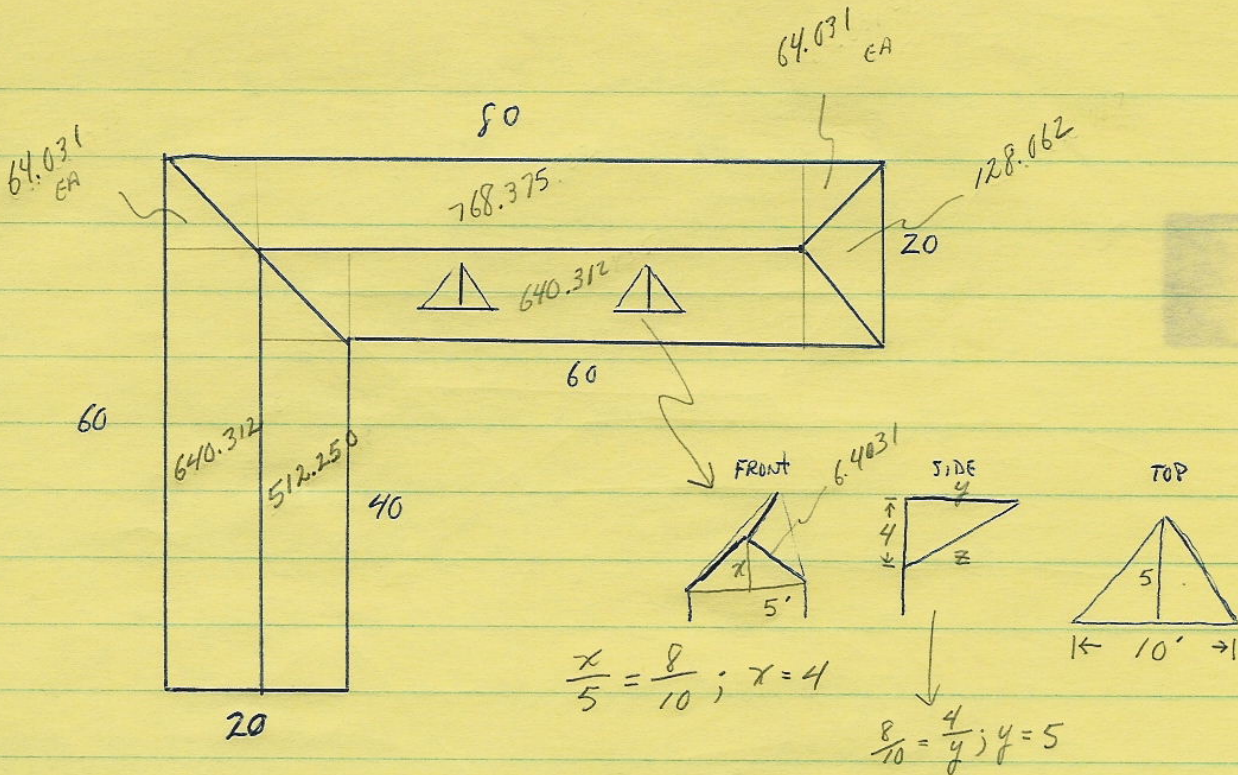 64.031
EA
80
64.031
EA
768.375
128.062
20
640.312
60
60
640.312
512.250
40
20
FRONT
6.4031
x
5'
SIDE
y
4
z
TOP
5
10'
x/5 = 8/10 ; x = 4
8/10 = 4/y ; y = 5